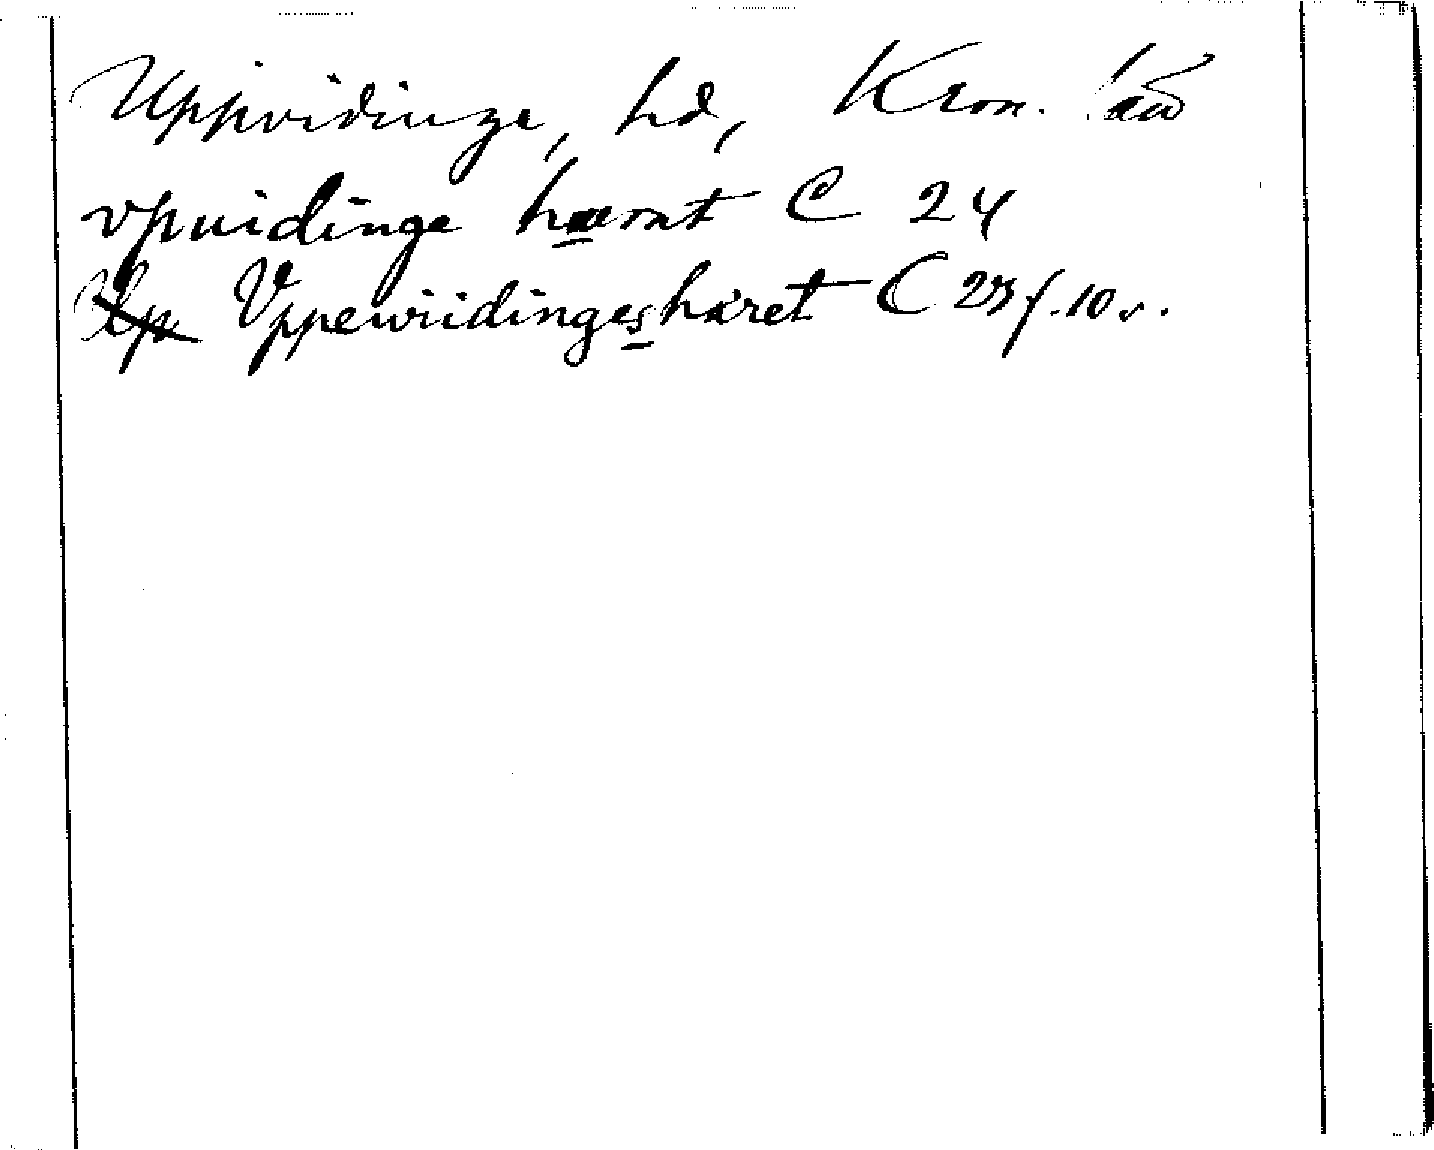 Uppvidinge, hd, Kron. län
vpuidinge hærat C 24
Vppewiidingesháret C 23 f. 10 v.